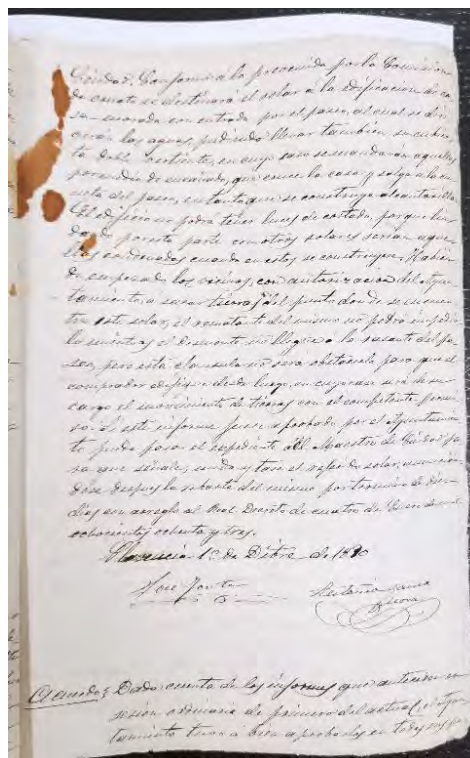 Ciudad. Conforme á lo prevenido por la Comisión
de ornato se destinará el solar á la edificación de ca-
sa-morada con entrada por el paseo, al cual se diri-
girán las aguas, pudiendo llevar también su cubier-
ta doble vertiente, en cuyo caso se mandarán aquellas
por medio de encañado, que cruce la casa y salga á la cu-
neta del paseo, en tanto que se construya alcantarilla.
El edificio no podrá tener luces de costado, porque lin-
dando por esta parte con otros solares serían aque-
llas condenadas cuando en estos se construyese. Habien-
do empezado los vecinos, con autorización del Ayun-
tamiento, a sacar tierra del punto donde se encuen-
tra este solar, el rematante del mismo no podrá impedir-
lo mientras el desmonte no llegue á la rasante del pa-
seo, pero esta cláusula no será obstáculo para que el
comprador edifique desde luego, en cuyo caso será de su
cargo el movimiento de tierras con el competente permi-
so. Si este informe fuere aprobado por el Ayuntamien-
to puede pasar el expediente al Maestro de Ciudad pa-
ra que señale, mida y tase el referido solar, anuncián-
dose después la subasta del mismo por término de diez
días con arreglo al Real Decreto de cuatro de Enero de mil
ochocientos ochenta y tres.
Plasencia 1º de Dibre de 1890
José
Acuerdo. Dada cuenta de los informes que anteceden en
sesión ordinaria de primero del actual, el Ayun-
tamiento tuvo a bien aprobarlos en todas sus par